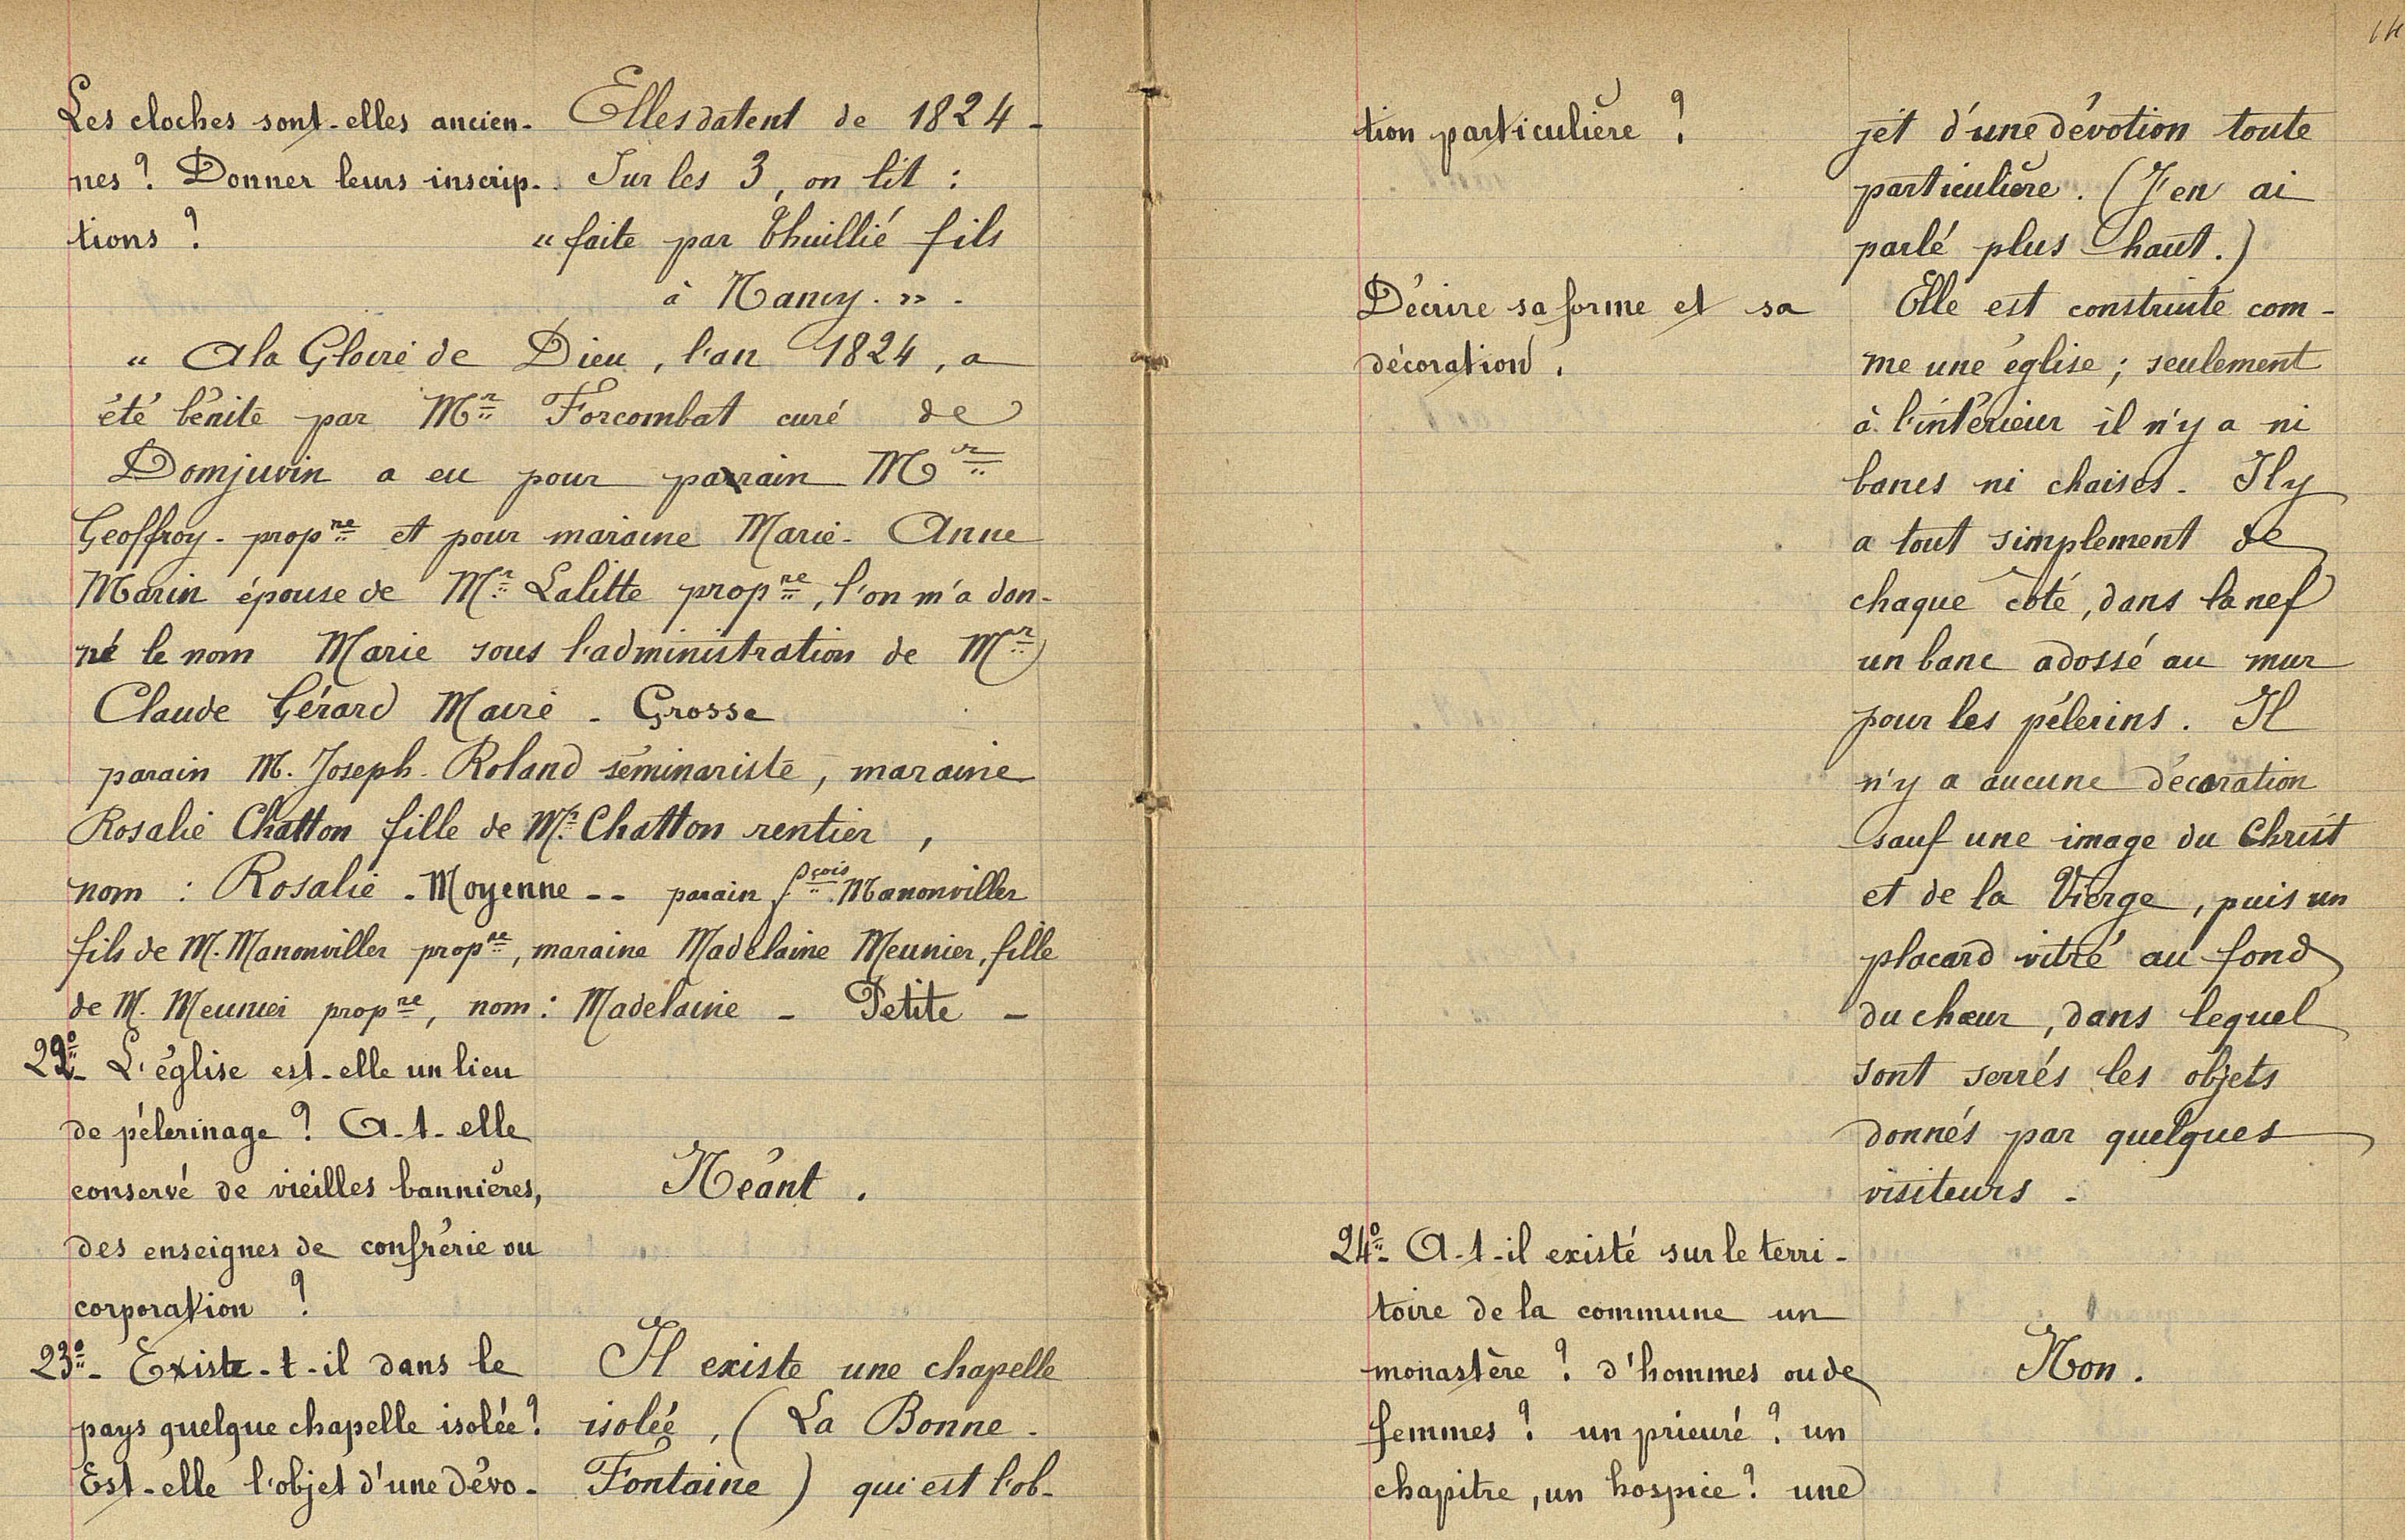 Les cloches sont-elles ancien-
nes ? Donner leurs inscrip-
tions ?
Elles datent de 1824 -
Sur les 3, on lit :
" faite par Thuillié fils
à Nancy. " -
" A la Gloire de Dieu, l'an 1824, a
été bénite par Mr Forcombat curé de
Domjuvin a eu pour parain Mr
Geoffroy - propre et pour maraine Marie - Anne
Marin épouse de Mr Lalitte propre, l'on m'a don-
né le nom Marie sous l'administration de Mr
Claude Gérard Maire - Grosse
parain M. Joseph - Roland séminariste, maraine
Rosalie Chatton fille de Mr Chatton rentier,
nom : Rosalie - Moyenne - - parain fçois Manonviller
fils de M. Manonviller propre, maraine Madelaine Meunier, fille
de M. Meunier propre, nom : Madelaine - Petite -
22o- L'église est-elle un lieu
de pélerinage ? A-t-elle
conservé de vieilles bannières,
des enseignes de confrérie ou
corporation ?
Néant.
23o- Existe-t-il dans le
pays quelque chapelle isolée ?
Est-elle l'objet d'une dévo-
Il existe une chapelle
isolée, ( La Bonne -
Fontaine ) qui est l'ob-
14
tion particulière ?
jet d'une dévotion toute
particulière. (J'en ai
parlé plus haut.)
Décrire sa forme et sa
décoration.
Elle est construite com-
me une église ; seulement
à l'intérieur il n'y a ni
bancs ni chaises. Il y
a tout simplement de
chaque côté, dans la nef
un banc adossé au mur
pour les pélerins. Il
n'y a aucune décoration
sauf une image du Christ
et de la Vierge, puis un
placard vitré au fond
du chœur, dans lequel
sont serrés les objets
donnés par quelques
visiteurs -
24o- A-t-il existé sur le terri-
toire de la commune un
monastère ? d'hommes ou de
femmes ? un prieuré ? un
chapitre, un hospice ? une
Non.